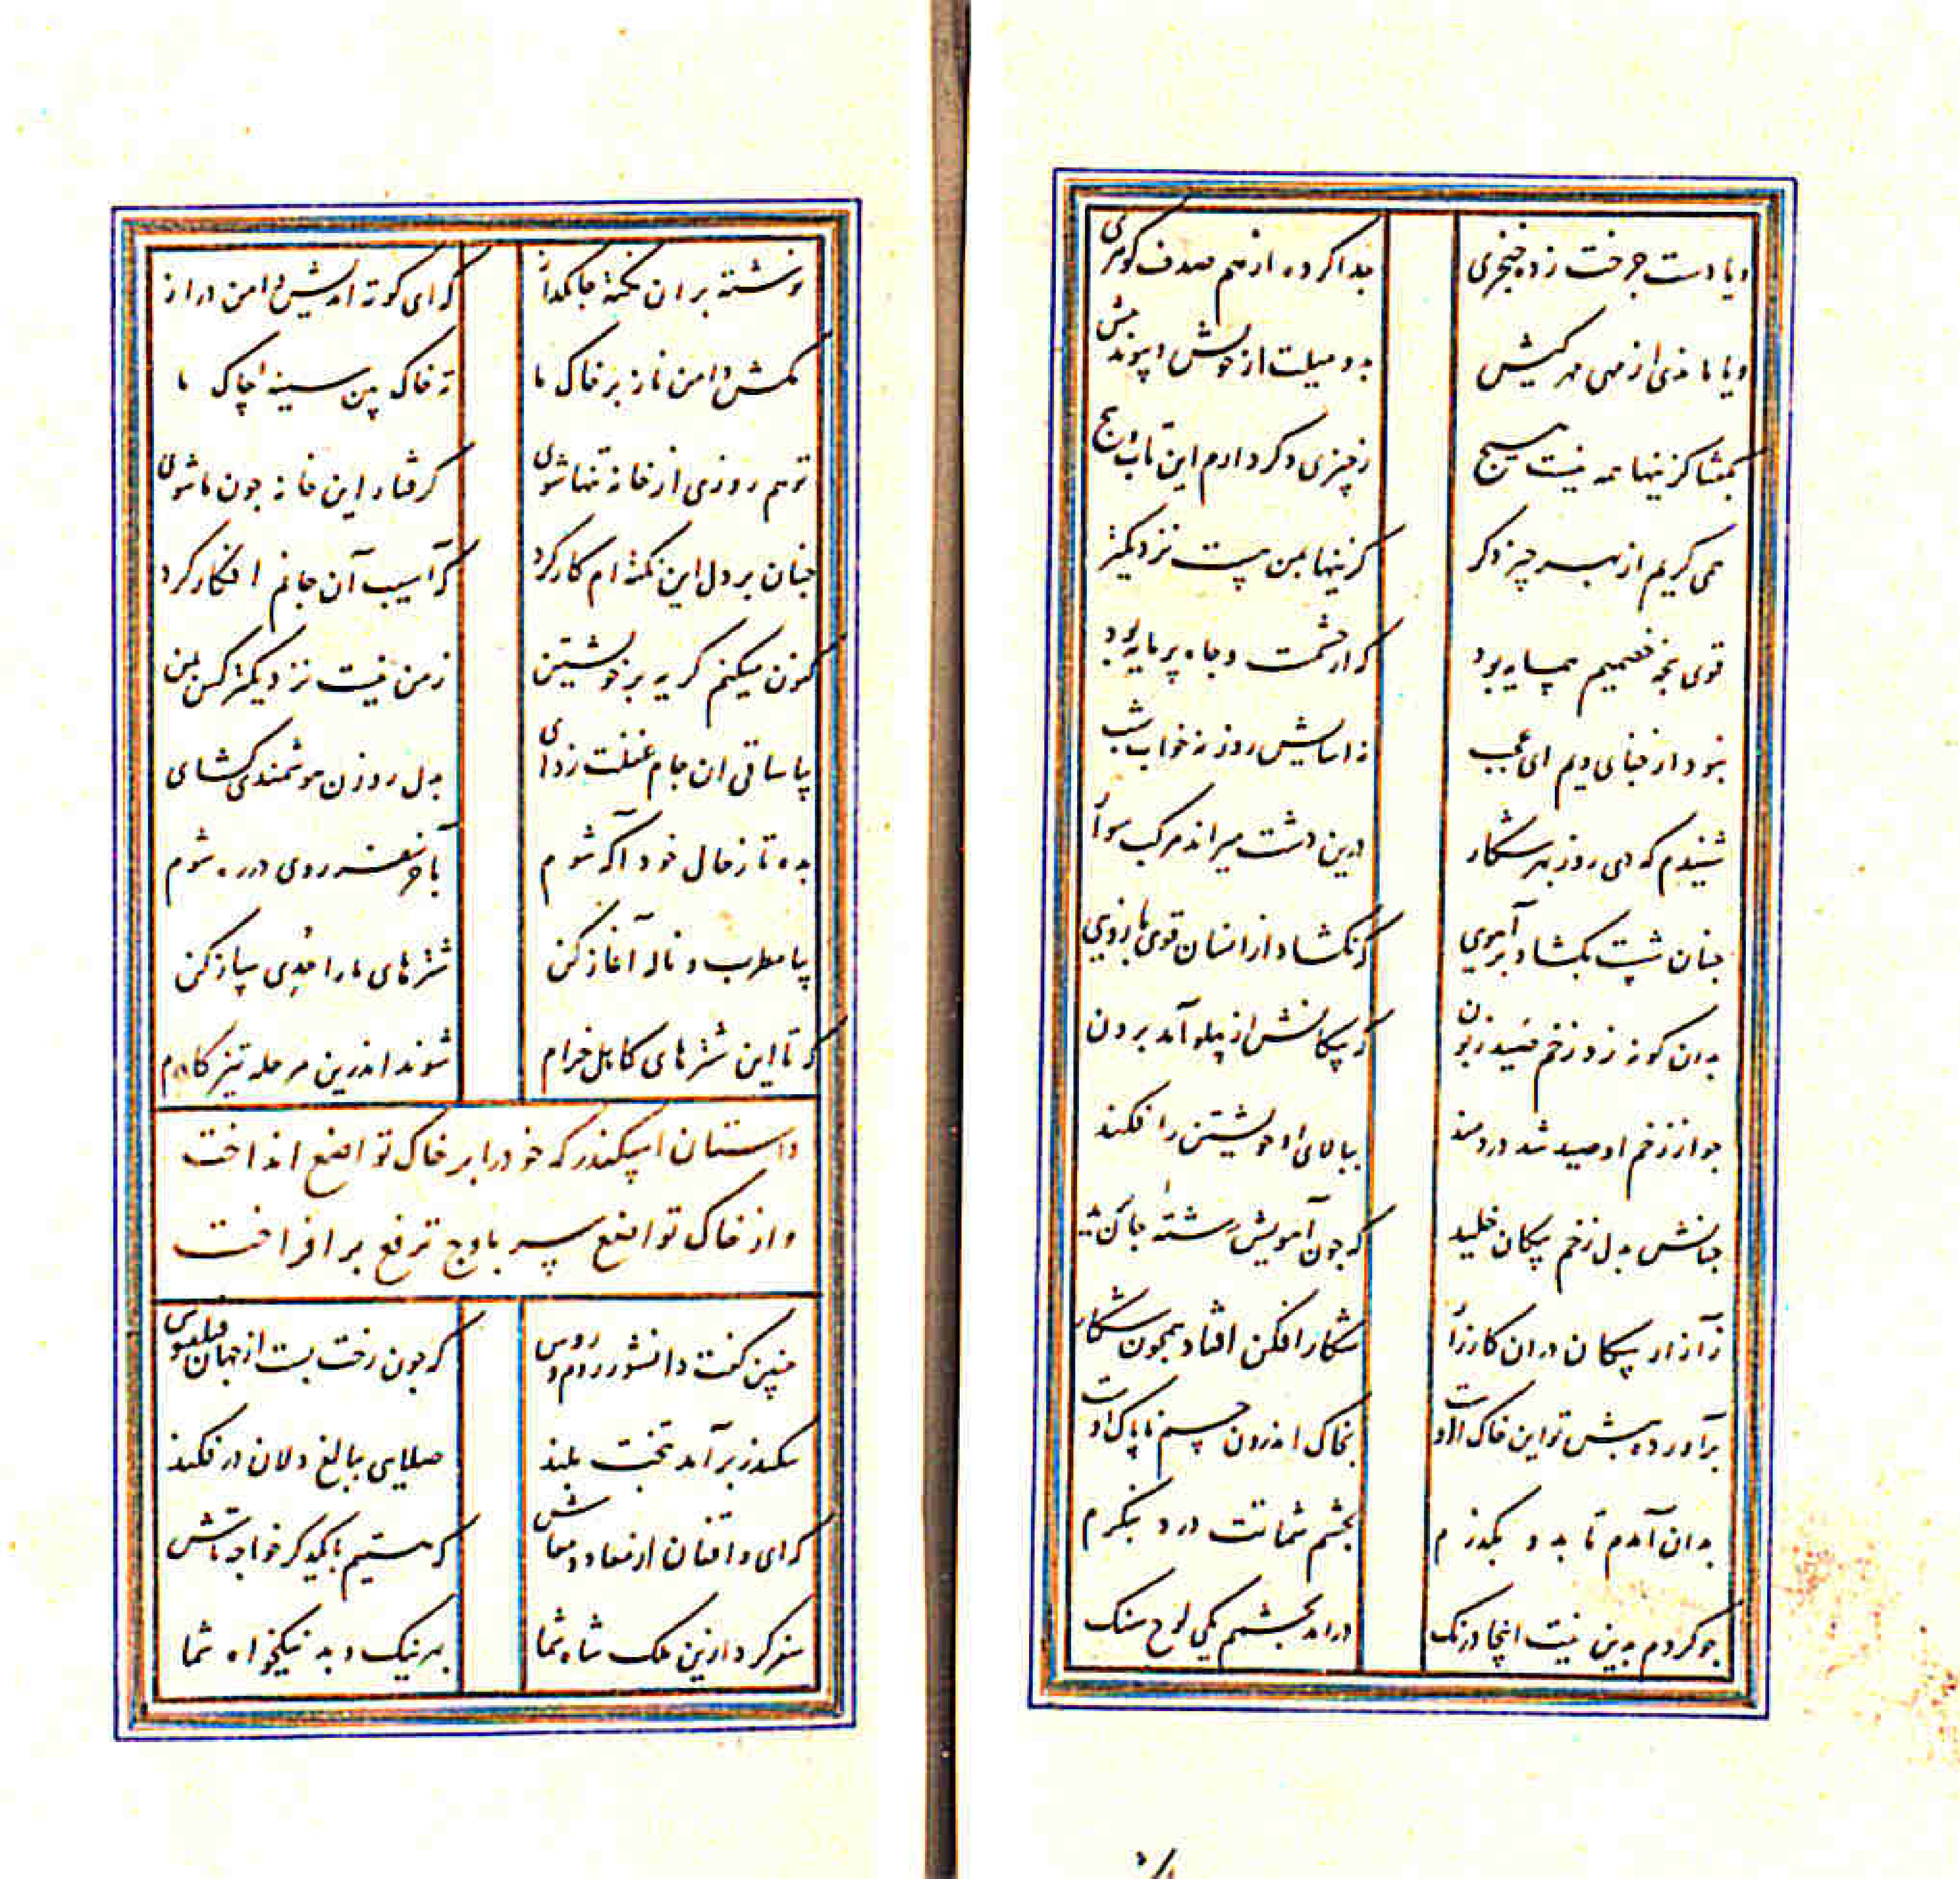 ویا دست چرخت زده خنجری جدا کرده از هم صدف گوهری
ویا مانده‌ای از مهی مهرکیش بدو میلت از خویش و پیوند بیش
بگفتا کزینها همه نیست هیچ زچیزی دگر دارم این تاب و پیچ
همی گریم از بهر چیز دگر کزینها بمن هست نزدیکتر
قوی پنجه خصمیم همسایه بود که از حشمت و جاه پر مایه بود
نبود از جفای ویم ای عجب نه اسایش روز نه خواب شب
شنیدم که دی روز بهر شکار درین دشت میراند مرکب سوار
چنان شست بگشاد بر آهویی که نگشاد از انسان قوی بازویی
بدان گونه زد زخم صید زبون که پیکانش از پهلو آمد برون
چو از زخم او صید شد دردمند ببالای او خویشتن را فکند
چنانش بدل زخم پیکان خلید که چون آهویش رشتهٔ جان
ز آزار پیکان دران کارزار شکار افکن افتاد همچون شکار
برآورده پشته‌ این خاک اوست بخاک اندرون جسم ناپاک اوست
بدان آمدم تا بدو بگذرم بچشم شماتت درو بنگرم
چو کردم بدین نیت اینجا درنگ درامد بچشمم یکی لوح سنگ
نوشته بران نکتهٔ جانگداز که ای کوته اندیش دامن دراز
مکش دامن ناز بر خاک ما ته خاک بین سینهٔ چاک ما
تو هم روزی از خانه تنها شوی گرفتار این خانه چون ما شوی
چنان بر دل این نکته‌ام کار کرد که آسیب آن جانم افکار کرد
کنون میکنم گریه بر خویشتن زمن نیست نزدیکتر کس بمن
بیا ساقی ان جام غفلت زدای بدل روزن هوشمندی گشای
بده تا ز حال خود آگه شوم بآخر سفر روی در ره شوم
بیا مطرب و ناله آغاز کن شترهای ما را حدی ساز کن
که تا این شترهای کاهل خرام شوند اندرین مرحله تیز کام
داستان اسکندر که خود را بر خاک تواضع انداخت
و از خاک تواضع سر باوج ترفع برافراخت
چنین گفت دانشور روم و روس که چون رخت بست از جهان فیلقوس
سکندر برآمد بتخت بلند صلایی ببالغ دلان در فکند
که ای واقفان از معاد و معاش که هستیم با یکدگر خواجه تاش
سفر کرد ازین ملک شاه شما بهر نیک و بد نیکخواه شما